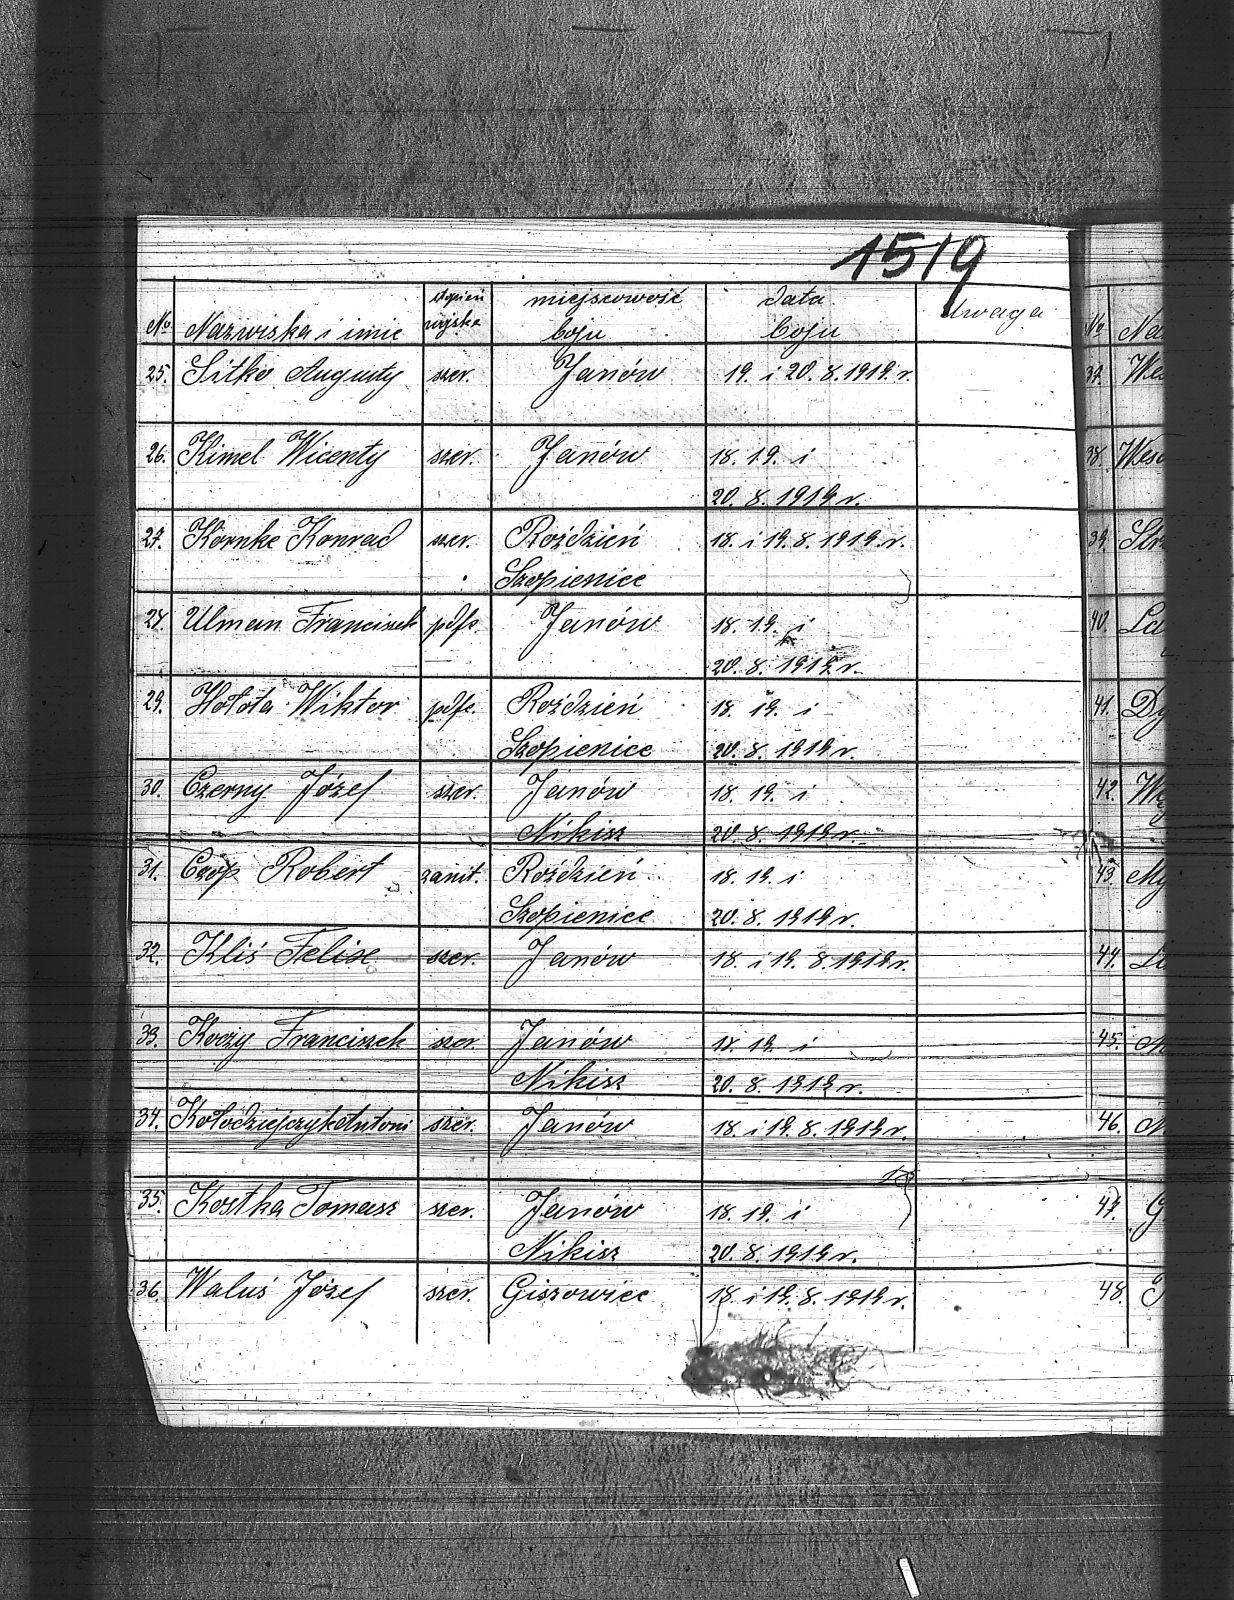 1519
No Nazwiska i imie stopień wojsk. miejscowość boju data boju Uwaga
25. Sitko Augusty szer. Janów 19. i 20. 8. 1919. r.
26. Kimel Wicenty szer. Janów 18. 19. i
20. 8. 1919 r.
27. Körnke Konrad szer. Roździeń 18. i 19. 8. 1919. r.
Szopienice
28. Ulman Franciszek pdfo. Janów 18. 19. i
20. 8. 1919 r.
29. Hołota Wiktor pdfo. Roździeń 18. 19. i
Szopienice 20. 8. 1919 r.
30. Czerny Józef szer. Janów 18. 19. i
Nikisz 20. 8. 1919 r.
31. Czop Robert sanit. Roździeń 18. 19. i
Szopienice 20. 8. 1919 r.
32. Kliś Felix szer. Janów 18. i 19. 8. 1919 r.
33. Koczy Franciszek szer. Janów 18. 19. i
Nikisz 20. 8. 1919 r.
34. Kołodziejczyk Antoni szer. Janów 18. i 19. 8. 1919 r.
35. Kostka Tomasz szer. Janów 18. 19. i
Nikisz 20. 8. 1919 r.
36. Waluś Józef szer. Giszowiec 18. i 19. 8. 1919 r.
No
37.
38.
39.
40.
41.
42.
43.
44.
45.
46.
47.
48.